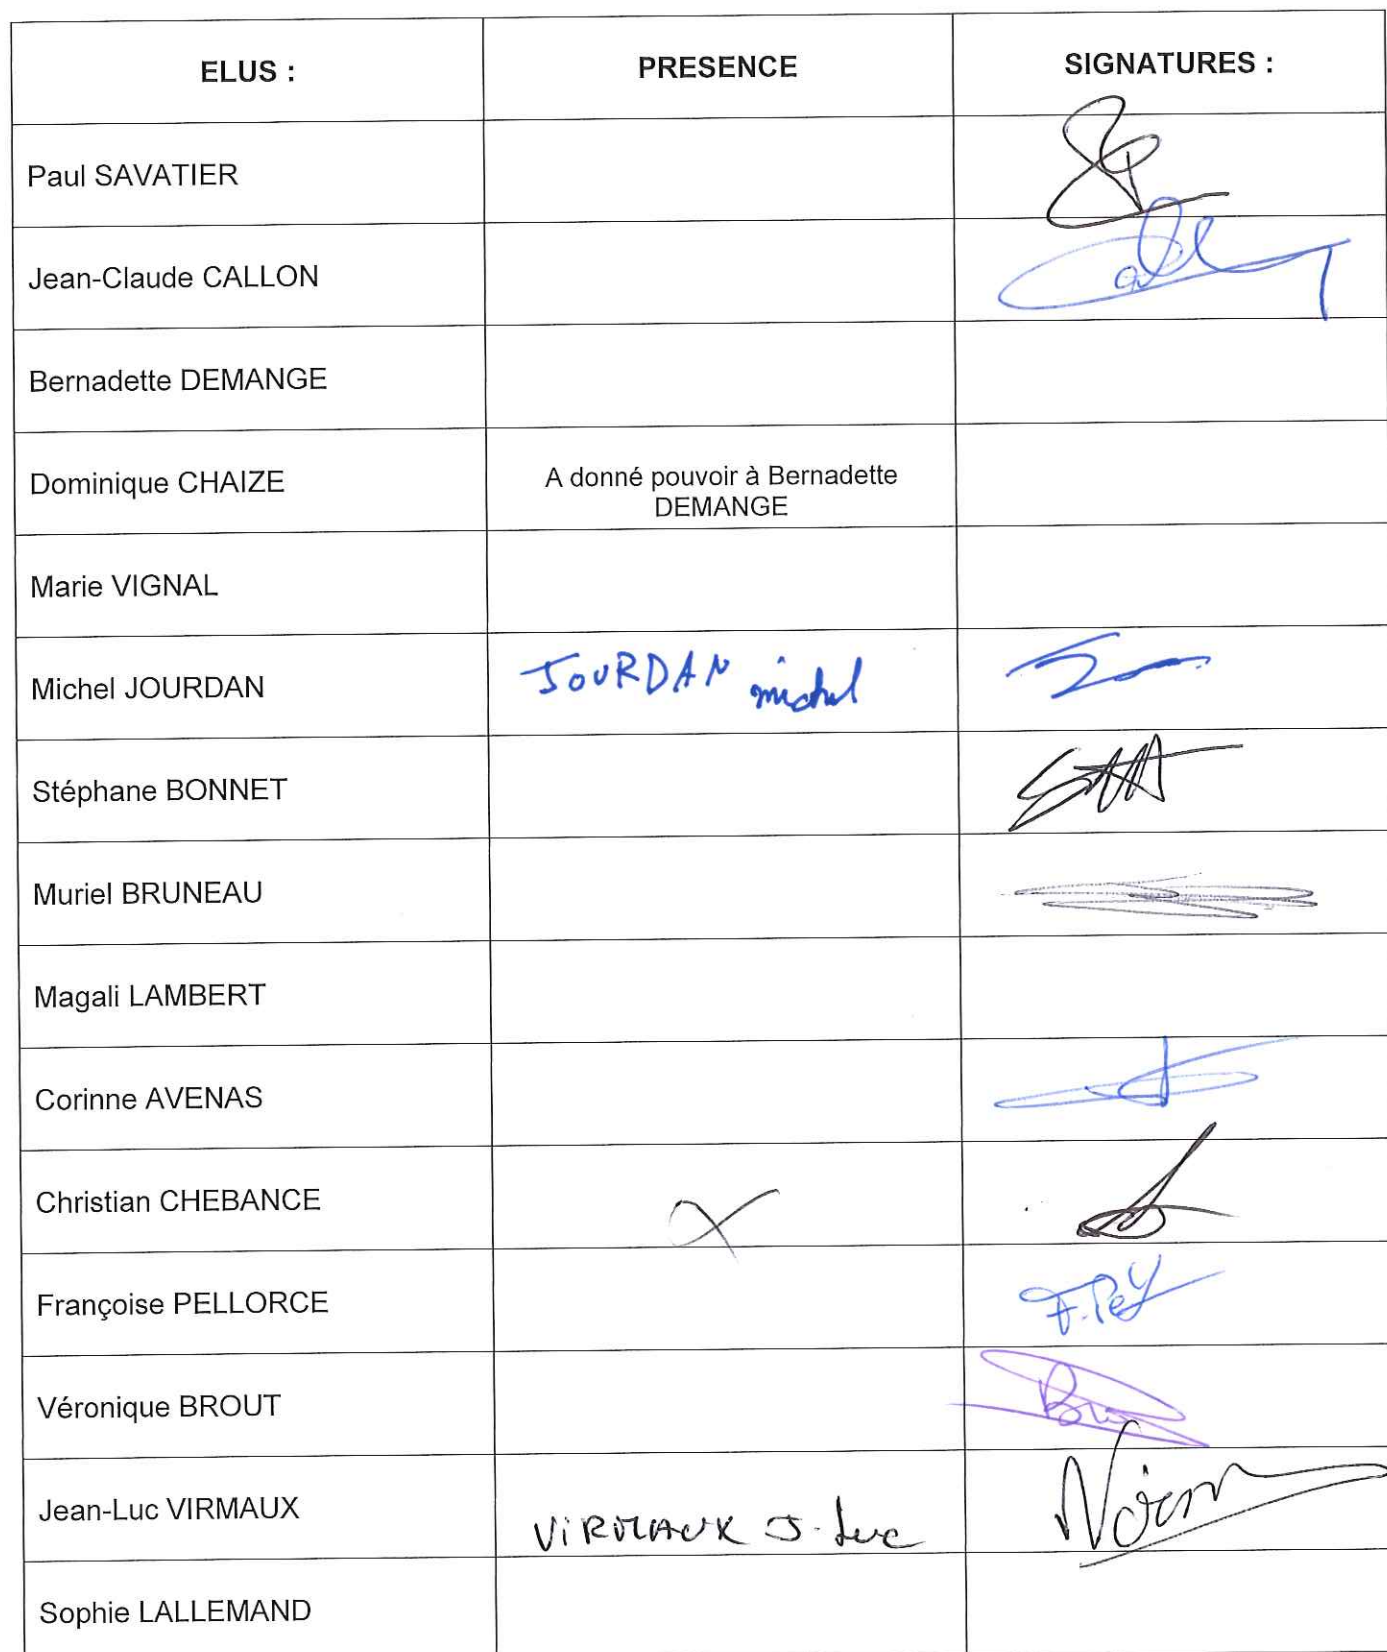 ELUS : PRESENCE SIGNATURES :
Paul SAVATIER
Jean-Claude CALLON
Bernadette DEMANGE
Dominique CHAIZE A donné pouvoir à Bernadette
DEMANGE
Marie VIGNAL
Michel JOURDAN JOURDAN michel
Stéphane BONNET
Muriel BRUNEAU
Magali LAMBERT
Corinne AVENAS
Christian CHEBANCE X
Françoise PELLORCE
Véronique BROUT
Jean-Luc VIRMAUX VIRMAUX J-Luc
Sophie LALLEMAND